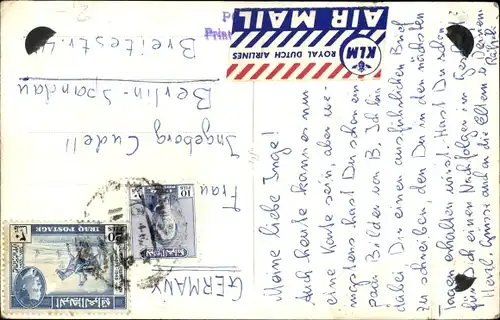 Meine liebe Inge!
Auch heute kann es nur
eine Karte sein, aber we-
nigstens hast Du schon ein
paar Bilder von B. Ich bin
dabei Dir einen ausführlichen Brief
zu schreiben, den Du in den nächsten
Tagen erhalten wirst. Hast Du schon
für Dich einen Nachfolger im Geschäft?
Herzl. Grüsse auch an die Eltern Deine
KLM
ROYAL DUTCH AIRLINES
AIR MAIL
Frau
Ingeborg Cudell
Berlin-Spandau
Breitestr.
GERMANY
IRAQ POSTAGE
10